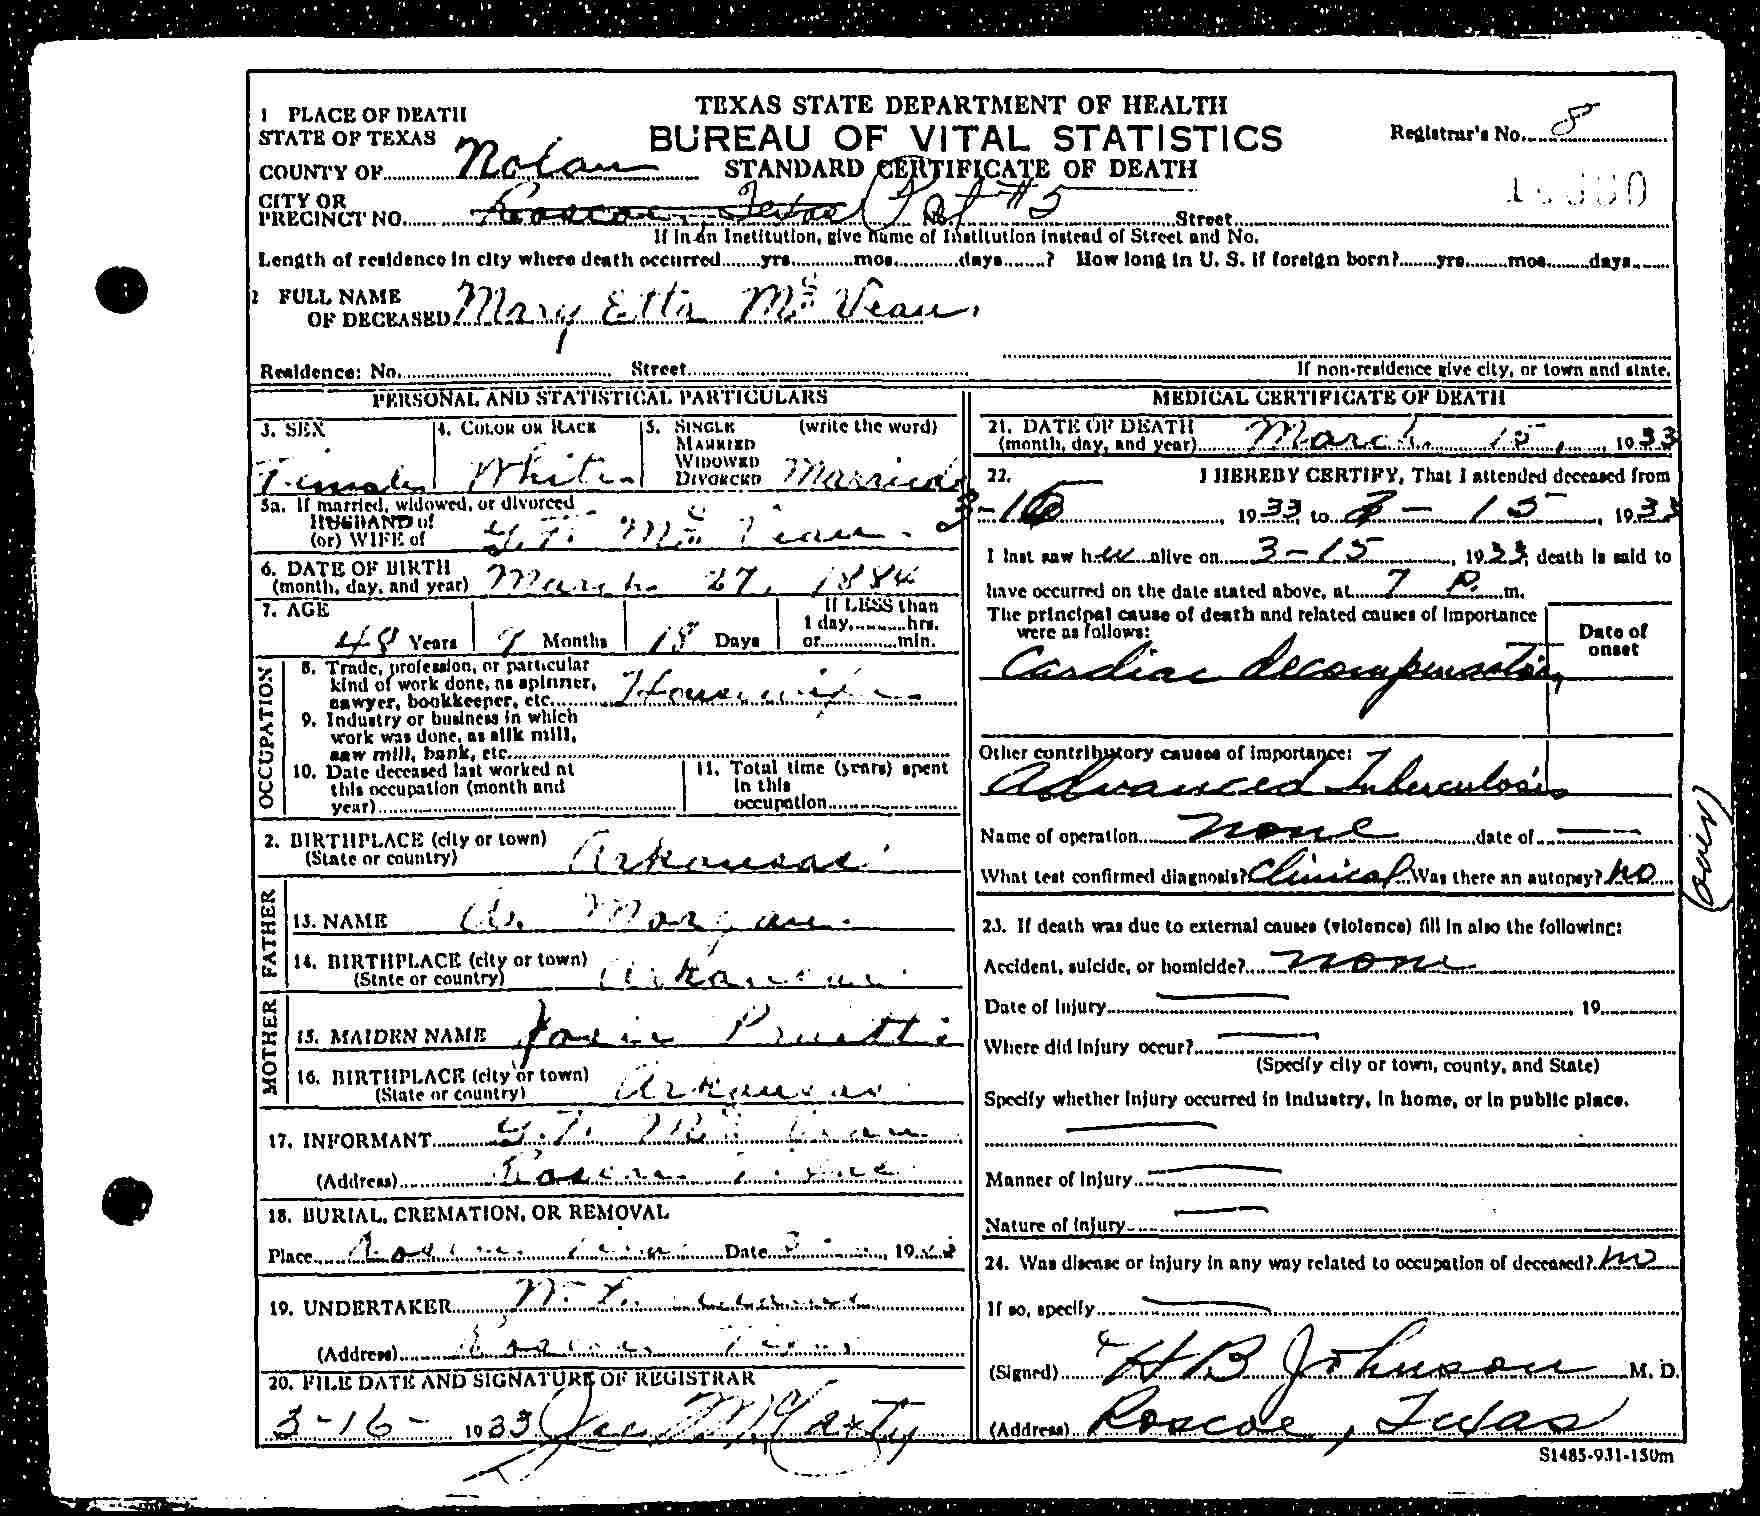 TEXAS STATE DEPARTMENT OF HEALTH
BUREAU OF VITAL STATISTICS
STANDARD CERTIFICATE OF DEATH
Registrar's No. 8
1 PLACE OF DEATH
STATE OF TEXAS
COUNTY OF Nolan
CITY OR
PRECINCT NO. Roscoe, Texas Pct #5 No. Street
If in an Institution, give name of Institution instead of Street and No.
Length of residence in city where death occurred yrs. mos. days ? How long in U. S. if foreign born? yrs. mos. days
2 FULL NAME
OF DECEASED Mary Etta McVean
Residence: No. Street
If non-residence give city, or town and state.
PERSONAL AND STATISTICAL PARTICULARS
3. SEX 4. COLOR OR RACE 5. SINGLE (write the word)
MARRIED
WIDOWED
DIVORCED
Female White Married
5a. If married, widowed, or divorced
HUSBAND of
(or) WIFE of McVean
6. DATE OF BIRTH
(month, day, and year) March 27, 1884
7. AGE If LESS than
1 day, hrs.
or min.
48 Years 9 Months 18 Days
OCCUPATION
8. Trade, profession, or particular
kind of work done, as spinner,
sawyer, bookkeeper, etc. Housewife
9. Industry or business in which
work was done, as silk mill,
saw mill, bank, etc.
10. Date deceased last worked at
this occupation (month and
year)
11. Total time (years) spent
in this
occupation
2. BIRTHPLACE (city or town)
(State or country) Arkansas
FATHER
13. NAME Morgan
14. BIRTHPLACE (city or town)
(State or country) Arkansas
MOTHER
15. MAIDEN NAME
16. BIRTHPLACE (city or town)
(State or country) Arkansas
17. INFORMANT McVean
(Address) Roscoe Texas
18. BURIAL, CREMATION, OR REMOVAL
Place Roscoe Texas Date 3 , 1933
19. UNDERTAKER
(Address) Roscoe Texas
20. FILE DATE AND SIGNATURE OF REGISTRAR
3-16- 1933 McCarty
MEDICAL CERTIFICATE OF DEATH
21. DATE OF DEATH
(month, day, and year) March 15, 1933
22. I HEREBY CERTIFY, That I attended deceased from
3-15 , 1933, to 3-15 , 1933
I last saw her alive on 3-15 , 1933, death is said to
have occurred on the date stated above, at 7 P. m.
The principal cause of death and related causes of importance
were as follows:
Date of
onset
Cardiac decompensation,
Other contributory causes of importance:
Advanced Tuberculosis
Name of operation none date of —
What test confirmed diagnosis? Clinical Was there an autopsy? no
(over)
23. If death was due to external causes (violence) fill in also the following:
Accident, suicide, or homicide? none
Date of Injury — , 19
Where did Injury occur? —
(Specify city or town, county, and State)
Specify whether injury occurred in industry, in home, or in public place.
—
Manner of Injury —
Nature of Injury —
24. Was disease or injury in any way related to occupation of deceased? no
If so, specify —
(Signed) H B Johnson M. D.
(Address) Roscoe, Texas
S1485-931-150m